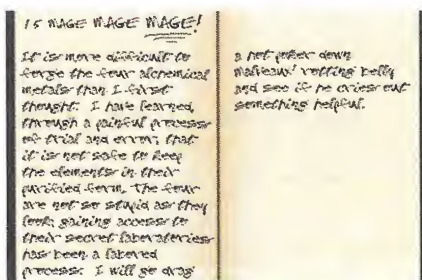 15 MAGE MAGE MAGE!
It is more difficult to
forge the four alchemical
metals than I first
thought. I have learned,
through a painful process
of trial and error, that
it is not safe to keep
the elements in their
purified form. The four
are not so stupid as they
look; gaining access to
their secret laboratories
has been a labored
process. I will go drag
a hot poker down
Malveaux' rotting belly
and see if he cries out
something helpful.